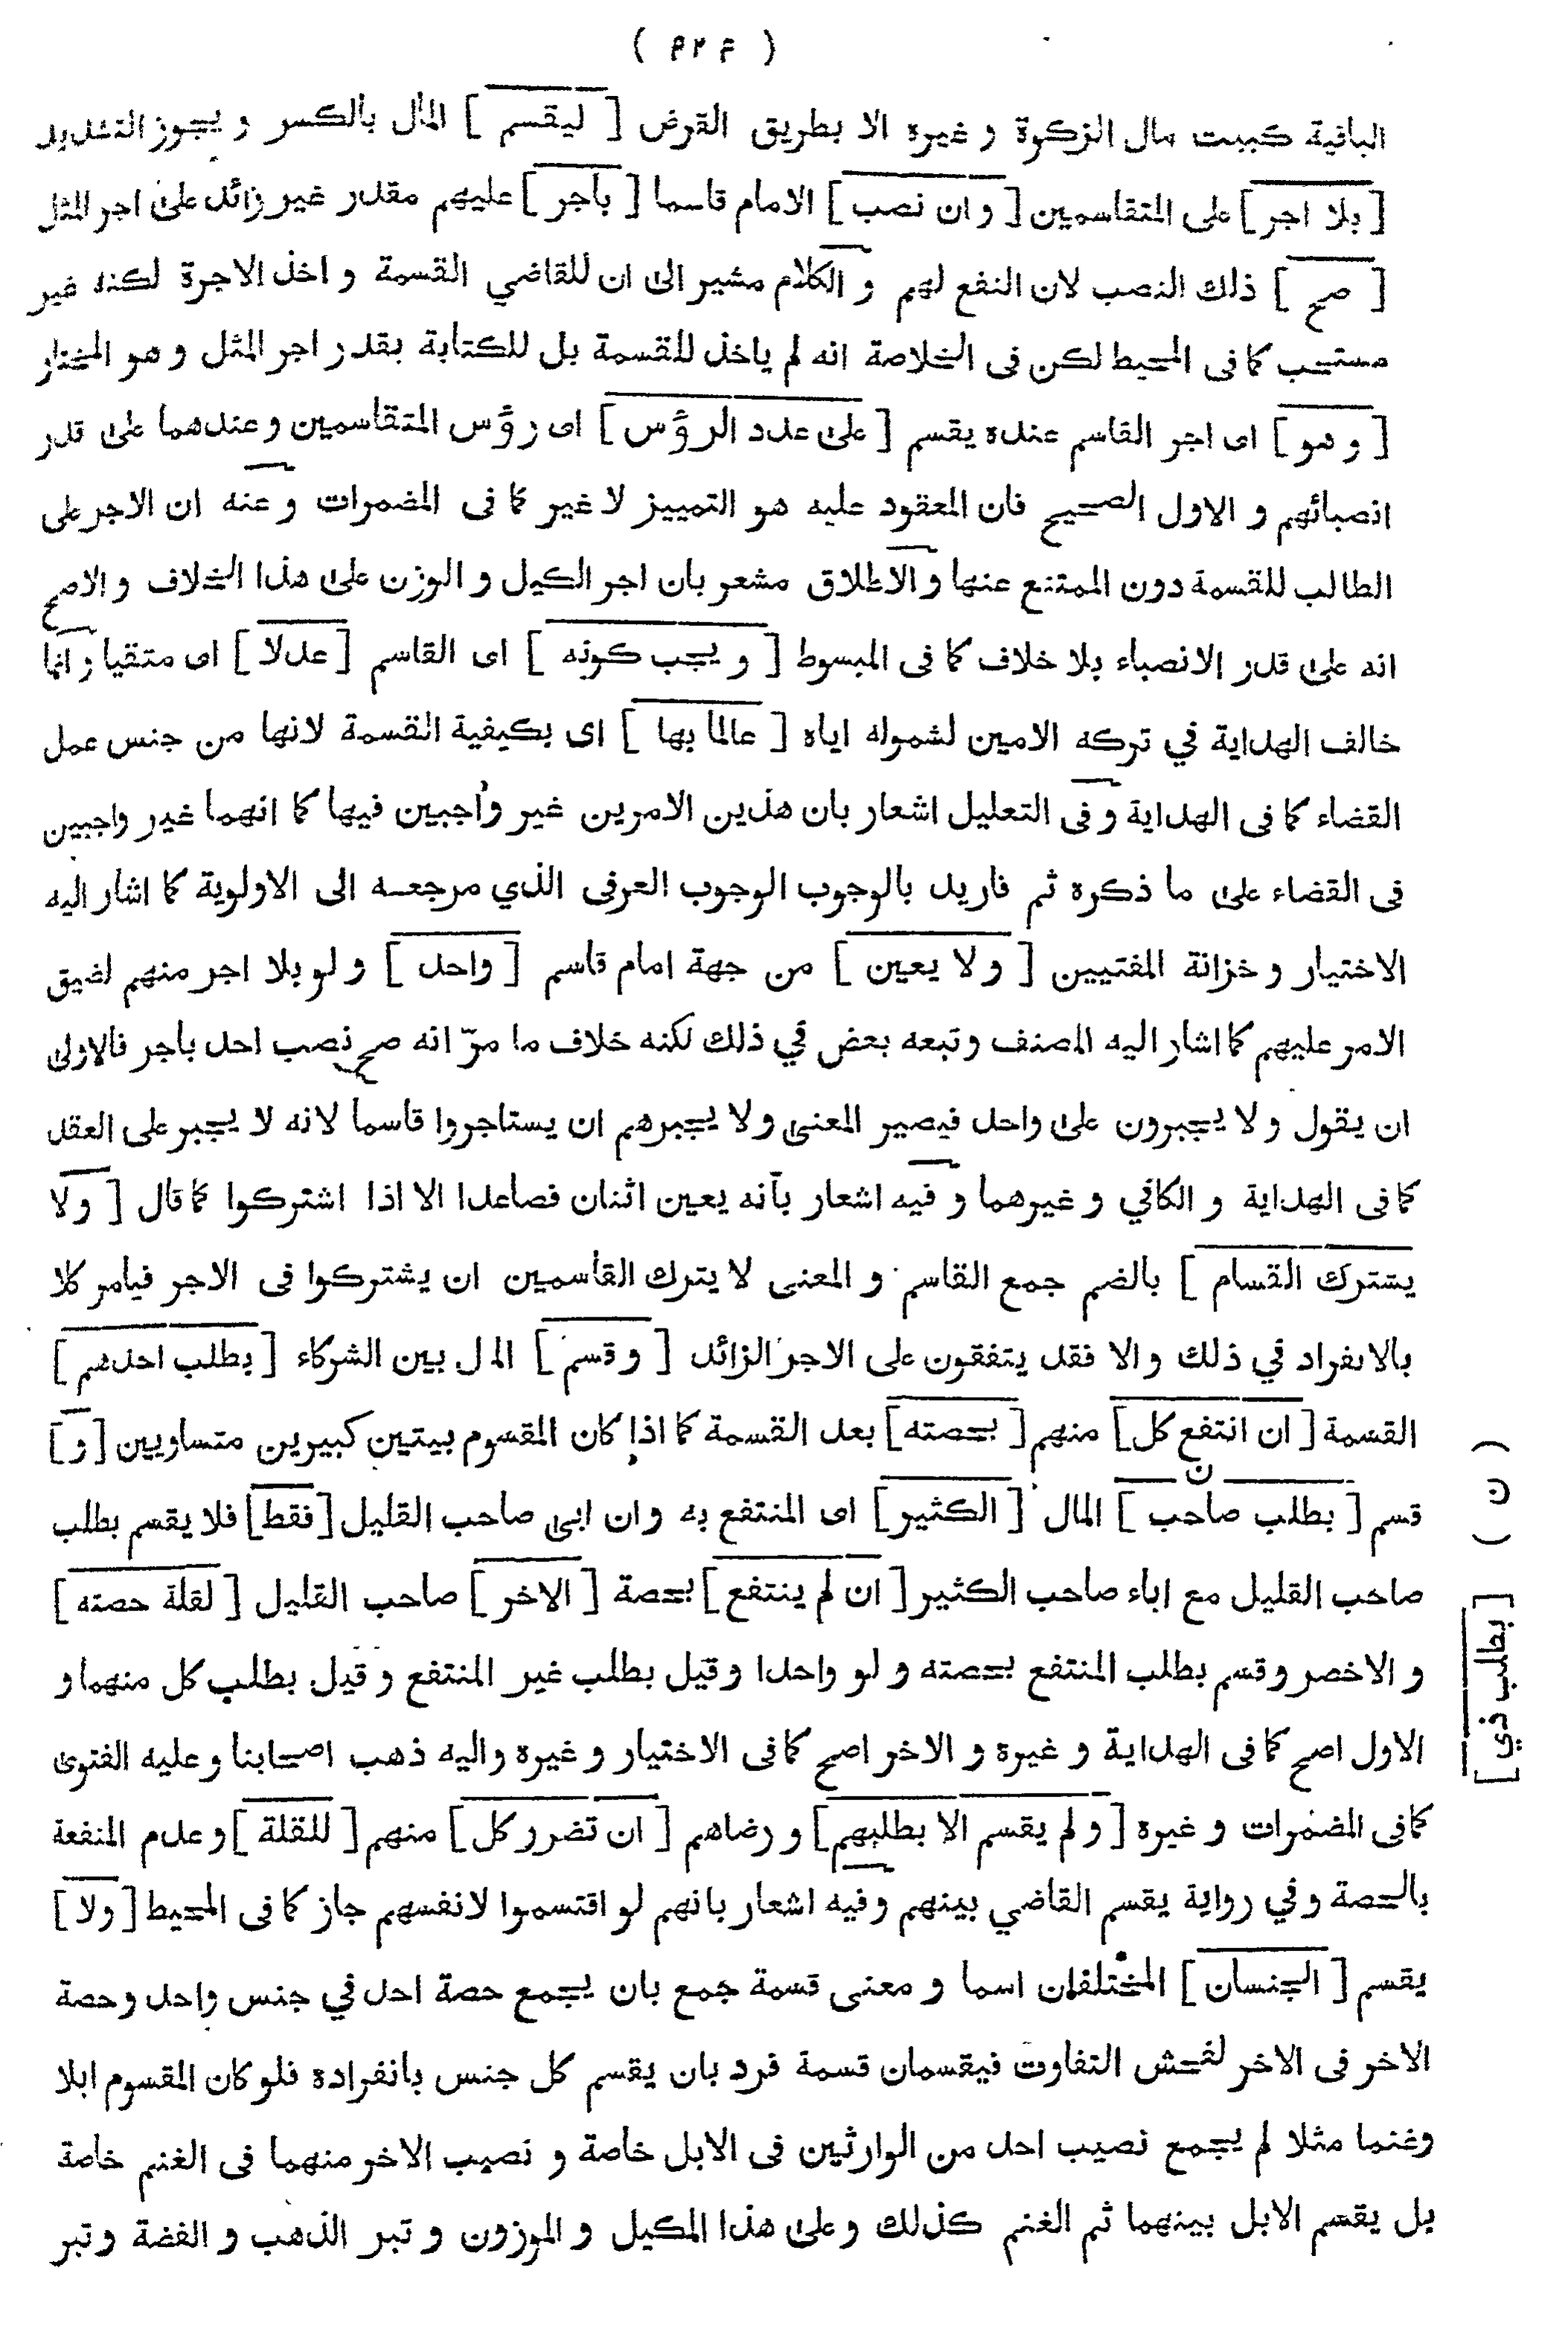 ( ۴۲۹ )
الباقية كبيت مال الزكوة و غيره الا بطريق القرض [ ليقسم ] المال بالكسر و يجوز التشديد
[ بلا اجر ] على المتقاسمين [ و ان نصب ] الامام قاسما [ بأجر ] عليهم مقدر غير زائد على اجر المثل
[ صح ] ذلك النصب لان النفع لهم و الكلام مشير الى ان للقاضي القسمة و اخذ الاجرة لكنه غير
مستحب كما فى المحيط لكن فى الخلاصة انه لم ياخذ للقسمة بل للكتابة بقدر اجر المثل و هو المختار
[ و هو ] اى اجر القاسم عنده يقسم [ على عدد الرؤس ] اى رؤس المتقاسمين و عندهما على قدر
انصبائهم و الاول الصحيح فان المعقود عليه هو التمييز لا غير كما فى المضمرات و عنه ان الاجر على
الطالب للقسمة دون الممتنع عنها و الاطلاق مشعر بان اجر الكيل و الوزن على هذا الخلاف و الاصح
انه على قدر الانصباء بلا خلاف كما فى المبسوط [ و يجب كونه ] اى القاسم [ عدلا ] اى متقيا و انما
خالف الهداية في تركه الامين لشموله اياه [ عالما بها ] اى بكيفية القسمة لانها من جنس عمل
القضاء كما فى الهداية و فى التعليل اشعار بان هذين الامرين غير واجبين فيها كما انهما غير واجبين
فى القضاء على ما ذكره ثم فاريد بالوجوب الوجوب العرفى الذي مرجعه الى الاولوية كما اشار اليه
الاختيار و خزانة المفتيين [ و لا يعين ] من جهة امام قاسم [ واحد ] و لو بلا اجر منهم لضيق
الامر عليهم كما اشار اليه المصنف و تبعه بعض في ذلك لكنه خلاف ما مرّ انه صح نصب احد بأجر فالاولى
ان يقول و لا يجبرون على واحد فيصير المعنى و لا يجبرهم ان يستاجروا قاسما لانه لا يجبر على العقد
كما فى الهداية و الكافي و غيرهما و فيه اشعار بأنه يعين اثنان فصاعدا الا اذا اشتركوا كما قال [ و لا
يشترك القسام ] بالضم جمع القاسم و المعنى لا يترك القاسمين ان يشتركوا فى الاجر فيامر كلا
بالانفراد في ذلك و الا فقد يتفقون على الاجر الزائد [ و قسم ] المال بين الشركاء [ بطلب احدهم ]
القسمة [ ان انتفع كل ] منهم [ بحصته ] بعد القسمة كما اذا كان المقسوم بيتين كبيرين متساويين [ و ]
قسم [ بطلب صاحب ن ] المال [ الكثير ] اى المنتفع به و ان ابى صاحب القليل [ فقط ] فلا يقسم بطلب
صاحب القليل مع اباء صاحب الكثير [ ان لم ينتفع ] بحصة [ الاخر ] صاحب القليل [ لقلة حصته ]
و الاخصر و قسم بطلب المنتفع بحصته و لو واحدا و قيل بطلب غير المنتفع و قيل بطلب كل منهما و
الاول اصح كما فى الهداية و غيره و الاخر اصح كما فى الاختيار و غيره و اليه ذهب اصحابنا و عليه الفتوى
كما فى المضمرات و غيره [ و لم يقسم الا بطلبهم ] و رضاهم [ ان تضرر كل ] منهم [ للقلة ] و عدم المنفعة
بالحصة و في رواية يقسم القاضي بينهم و فيه اشعار بانهم لو اقتسموا لانفسهم جاز كما فى المحيط [ و لا ]
يقسم [ الجنسان ] المختلفان اسما و معنى قسمة جمع بان يجمع حصة احد في جنس واحد و حصة
الاخر فى الاخر لفحش التفاوت فيقسمان قسمة فرد بان يقسم كل جنس بانفراده فلو كان المقسوم ابلا
و غنما مثلا لم يجمع نصيب احد من الوارثين فى الابل خاصة و نصيب الاخر منهما فى الغنم خاصة
بل يقسم الابل بينهما ثم الغنم كذلك و على هذا المكيل و الموزون و تبر الذهب و الفضة و تبر
( ن ) [ بطلب ذي ]